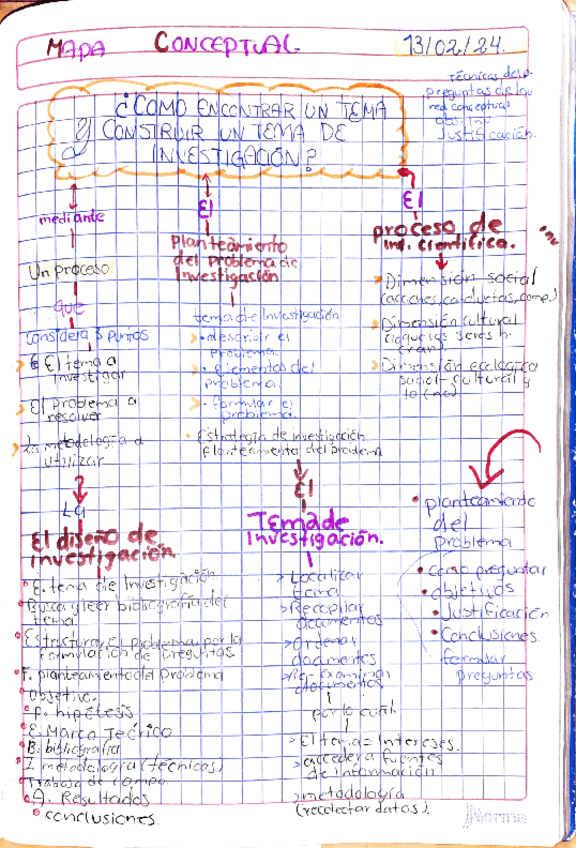 MAPA CONCEPTUAL 13/02/24.
Técnicas de
preguntas de
red conceptual
Justificación.
¿CÓMO ENCONTRAR UN TEMA
Y CONSTRUIR UN TEMA DE
INVESTIGACIÓN?
mediante
Un proceso
que
considera 3 puntos
El tema a
investigar
El problema a
resolver
La metodología a
utilizar
La
El diseño de
investigación
E. tema de Investigación
Busca y leer bibliografía del
tema.
Estructurar el problema por la
formulación de preguntas
F. planteamiento del problema
Objetivo.
F. hipótesis
E. Marco Teórico
B. bibliografía
I. metodología (técnicas)
Trabajo de campo
A. Resultados
conclusiones.
El
Planteamiento
del Problema de
Investigación
tema de Investigación
describir el
problema
elementos del
problema.
formular el
problema.
Estrategia de investigación
planteamiento del problema
El
Tema de
Investigación.
Localizar
tema
Recopilar
documentos
Ordenar
documentos
documentos
por lo cual
El tema = Intereses.
acceder a fuentes
de información
metodología
(recolectar datos).
El
proceso de
inv. científica.
inv
Dimensión social
(acciones, conductas, comp.)
Dimensión cultural
Dimensión ecológica
social-cultural y
planteamiento
del
problema
como preguntar
objetivos
Justificación
Conclusiones
formular
preguntas
Norma